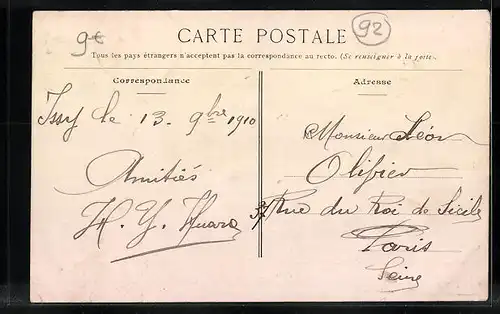 9€
92
CARTE POSTALE
Tous les pays étrangers n'acceptent pas la correspondance au recto. (Se renseigner à la poste).
Correspondance
Issy le 13. 9bre 1910
Amitiés
H. Y. Huard
Adresse
Monsieur Léon
Olivier
37 Rue du Roi de Sicile
Paris
Seine